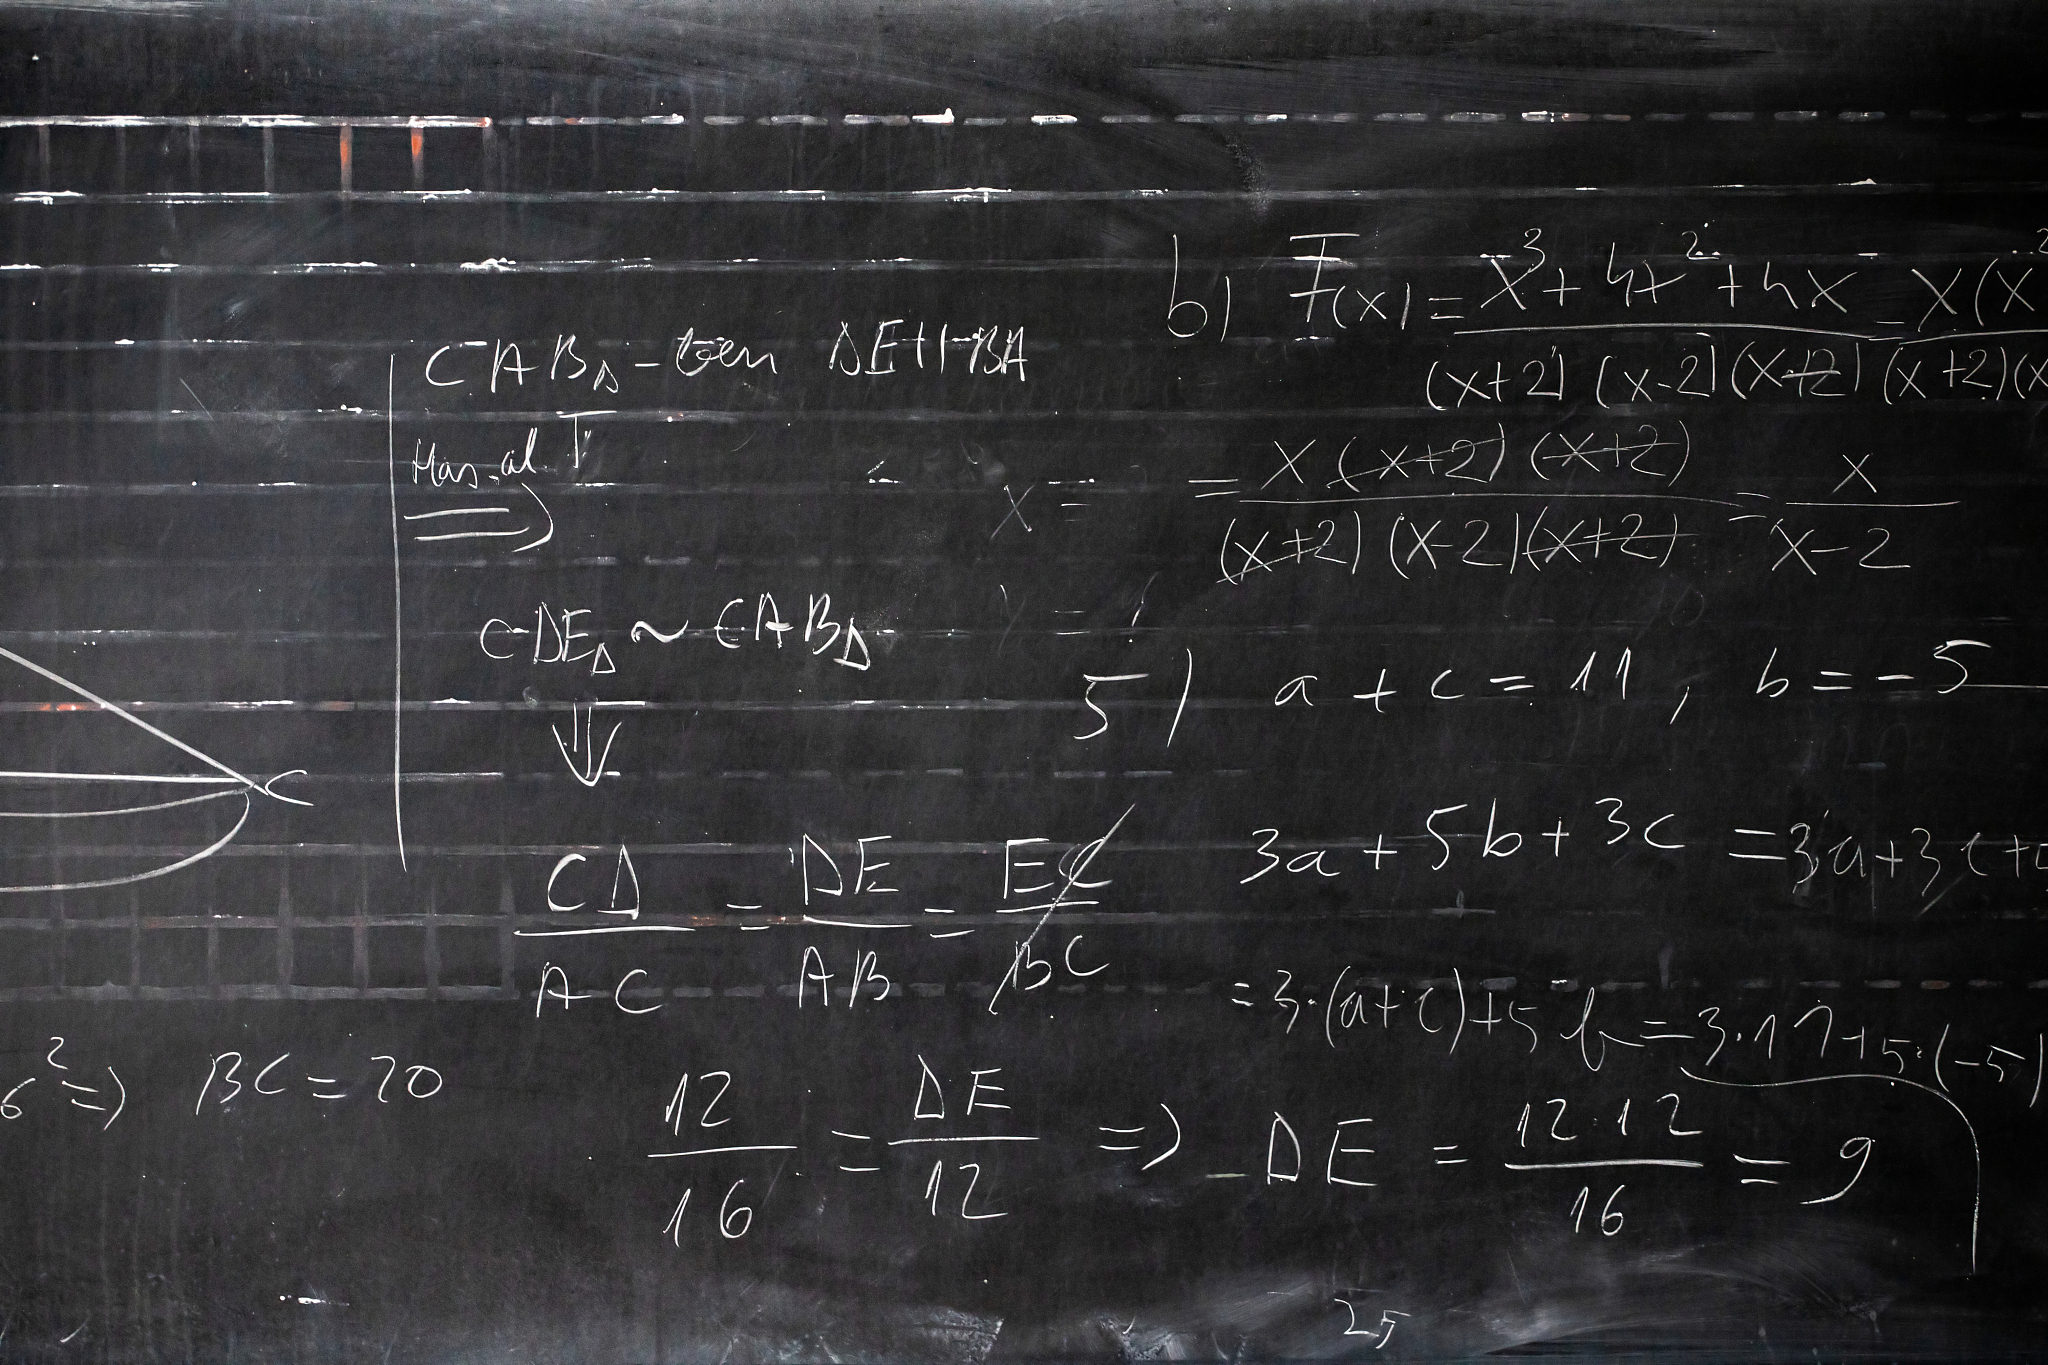 CAB△-ben DE || BA
Has. al. T
⇒
CDE△ ~ CAB△
⇓
C
CD/AC = DE/AB = EC/BC
6² ⇒ BC = 20
12/16 = DE/12 ⇒ DE = 12·12/16 = 9
b) F(x) = x³ + 4x² + 4x / (x+2)(x-2)(x+2) = x(x² / (x+2)(x
= x(x+2)(x+2) / (x+2)(x-2)(x+2) = x / x-2
x =
5) a + c = 11, b = -5
3a + 5b + 3c = 3a + 3c +
= 3·(a+c)+5b = 3·11+5·(-5)
25